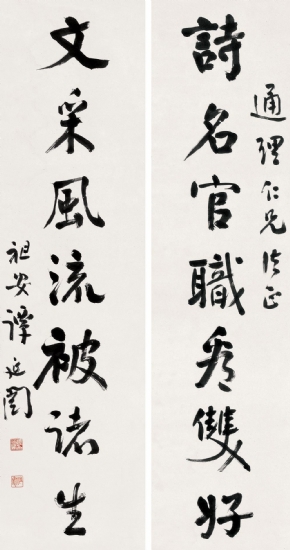 通理仁兄法正
詩名官職看雙好
文采風流被諸生
祖安譚延闓